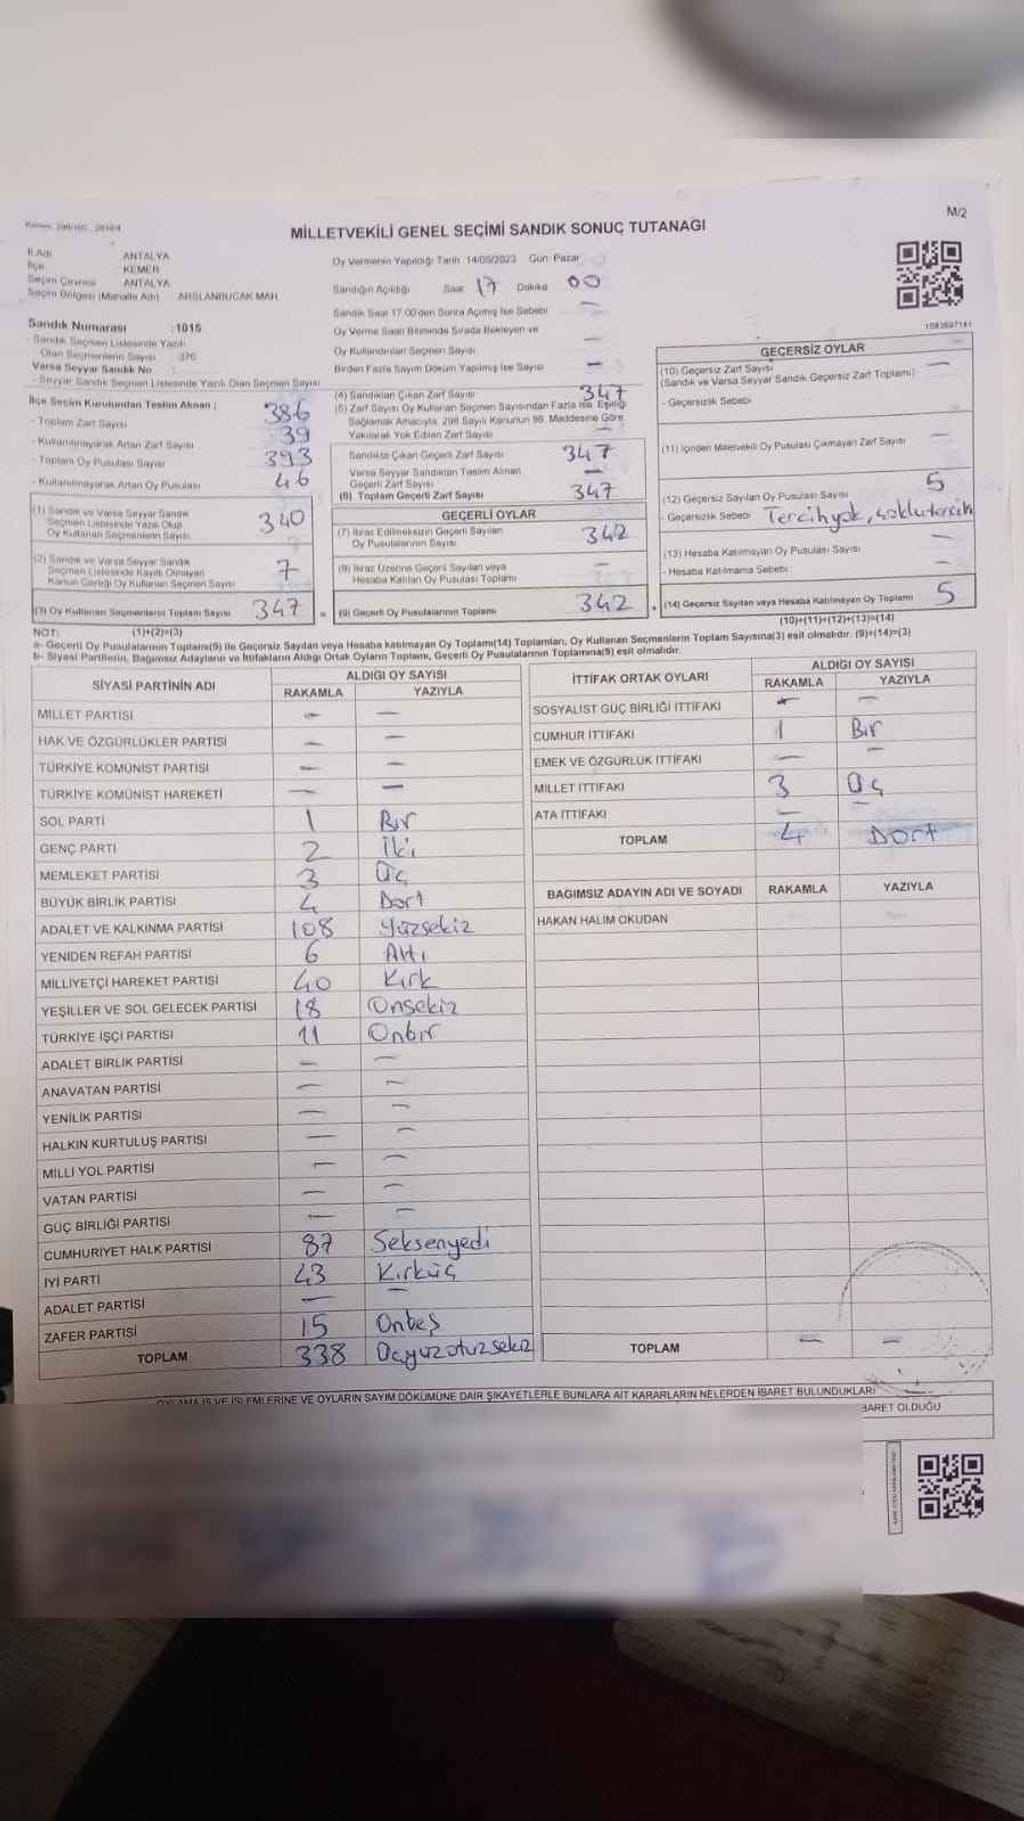 M/2
MİLLETVEKİLİ GENEL SEÇİMİ SANDIK SONUÇ TUTANAĞI
İl Adı ANTALYA
İlçe KEMER
Seçim Çevresi ANTALYA
Seçim Bölgesi (Mahalle Adı) ARSLANBUCAK MAH.
Oy Vermenin Yapıldığı Tarih 14/05/2023 Gün Pazar
Sandığın Açıldığı Saat 17 Dakika 00
Sandık Saat 17.00'den Sonra Açılmış İse Sebebi —
Oy Verme Saati Bitiminde Sırada Bekleyen ve
Oy Kullandırılan Seçmen Sayısı —
Birden Fazla Sayım Döküm Yapılmış İse Sayısı —
Sandık Numarası : 1015
- Sandık Seçmen Listesinde Yazılı
Olan Seçmenlerin Sayısı : 376
Varsa Seyyar Sandık No
- Seyyar Sandık Seçmen Listesinde Yazılı Olan Seçmen Sayısı
İlçe Seçim Kurulundan Teslim Alınan ;
- Toplam Zarf Sayısı 386
- Kullanılmayarak Artan Zarf Sayısı 39
- Toplam Oy Pusulası Sayısı 393
- Kullanılmayarak Artan Oy Pusulası 46
(1) Sandık ve Varsa Seyyar Sandık
Seçmen Listesinde Yazılı Olup
Oy Kullanan Seçmenlerin Sayısı 340
(2) Sandık ve Varsa Seyyar Sandık
Seçmen Listesinde Kayıtlı Olmayan
Kanun Gereği Oy Kullanan Seçmen Sayısı 7
(3) Oy Kullanan Seçmenlerin Toplam Sayısı 347 =
(1)+(2)=(3)
(4) Sandıktan Çıkan Zarf Sayısı 347
(5) Zarf Sayısı Oy Kullanan Seçmen Sayısından Fazla İse, Eşitliği
Sağlamak Amacıyla, 298 Sayılı Kanunun 98. Maddesine Göre
Yakılarak Yok Edilen Zarf Sayısı —
Sandıkta Çıkan Geçerli Zarf Sayısı 347
Varsa Seyyar Sandıktan Teslim Alınan
Geçerli Zarf Sayısı —
(6) Toplam Geçerli Zarf Sayısı 347
GEÇERLİ OYLAR
(7) İtiraz Edilmeksizin Geçerli Sayılan
Oy Pusulalarının Sayısı 342
(8) İtiraz Üzerine Geçerli Sayılan veya
Hesaba Katılan Oy Pusulası Toplamı —
(9) Geçerli Oy Pusulalarının Toplamı 342
GEÇERSİZ OYLAR
(10) Geçersiz Zarf Sayısı —
(Sandık ve Varsa Seyyar Sandık Geçersiz Zarf Toplamı)
- Geçersizlik Sebebi
(11) İçinden Milletvekili Oy Pusulası Çıkmayan Zarf Sayısı —
(12) Geçersiz Sayılan Oy Pusulası Sayısı 5
- Geçersizlik Sebebi Tercihyok,
(13) Hesaba Katılmayan Oy Pusulası Sayısı —
- Hesaba Katılmama Sebebi : —
(14) Geçersiz Sayılan veya Hesaba Katılmayan Oy Toplamı 5
(10)+(11)+(12)+(13)=(14)
NOT:
a- Geçerli Oy Pusulalarının Toplamı(9) ile Geçersiz Sayılan veya Hesaba katılmayan Oy Toplamı(14) Toplamları, Oy Kullanan Seçmenlerin Toplam Sayısına(3) eşit olmalıdır. (9)+(14)=(3)
b- Siyasi Partilerin, Bağımsız Adayların ve İttifakların Aldığı Ortak Oyların Toplamı, Geçerli Oy Pusulalarının Toplamına(9) eşit olmalıdır.
SİYASİ PARTİNİN ADI ALDIĞI OY SAYISI
RAKAMLA YAZIYLA
MİLLET PARTİSİ — —
HAK VE ÖZGÜRLÜKLER PARTİSİ — —
TÜRKİYE KOMÜNİST PARTİSİ — —
TÜRKİYE KOMÜNİST HAREKETİ — —
SOL PARTİ 1 Bir
GENÇ PARTİ 2 İki
MEMLEKET PARTİSİ 3 Üç
BÜYÜK BİRLİK PARTİSİ 4 Dört
ADALET VE KALKINMA PARTİSİ 108 Yüzsekiz
YENİDEN REFAH PARTİSİ 6 Altı
MİLLİYETÇİ HAREKET PARTİSİ 40 Kırk
YEŞİLLER VE SOL GELECEK PARTİSİ 18 Onsekiz
TÜRKİYE İŞÇİ PARTİSİ 11 Onbir
ADALET BİRLİK PARTİSİ — —
ANAVATAN PARTİSİ — —
YENİLİK PARTİSİ — —
HALKIN KURTULUŞ PARTİSİ — —
MİLLİ YOL PARTİSİ — —
VATAN PARTİSİ — —
GÜÇ BİRLİĞİ PARTİSİ — —
CUMHURİYET HALK PARTİSİ 87 Seksenyedi
İYİ PARTİ 43 Kırküç
ADALET PARTİSİ — —
ZAFER PARTİSİ 15 Onbeş
TOPLAM 338 Üçyüzotuzsekiz
İTTİFAK ORTAK OYLARI ALDIĞI OY SAYISI
RAKAMLA YAZIYLA
SOSYALİST GÜÇ BİRLİĞİ İTTİFAKI — —
CUMHUR İTTİFAKI 1 Bir
EMEK VE ÖZGÜRLÜK İTTİFAKI — —
MİLLET İTTİFAKI 3 Üç
ATA İTTİFAKI — —
TOPLAM 4 Dört
BAĞIMSIZ ADAYIN ADI VE SOYADI RAKAMLA YAZIYLA
HAKAN HALİM OKUDAN
TOPLAM — —
OYLAMA İŞ VE İŞLEMLERİNE VE OYLARIN SAYIM DÖKÜMÜNE DAİR ŞİKAYETLERLE BUNLARA AİT KARARLARIN NELERDEN İBARET BULUNDUKLARI
BARET OLDUĞU